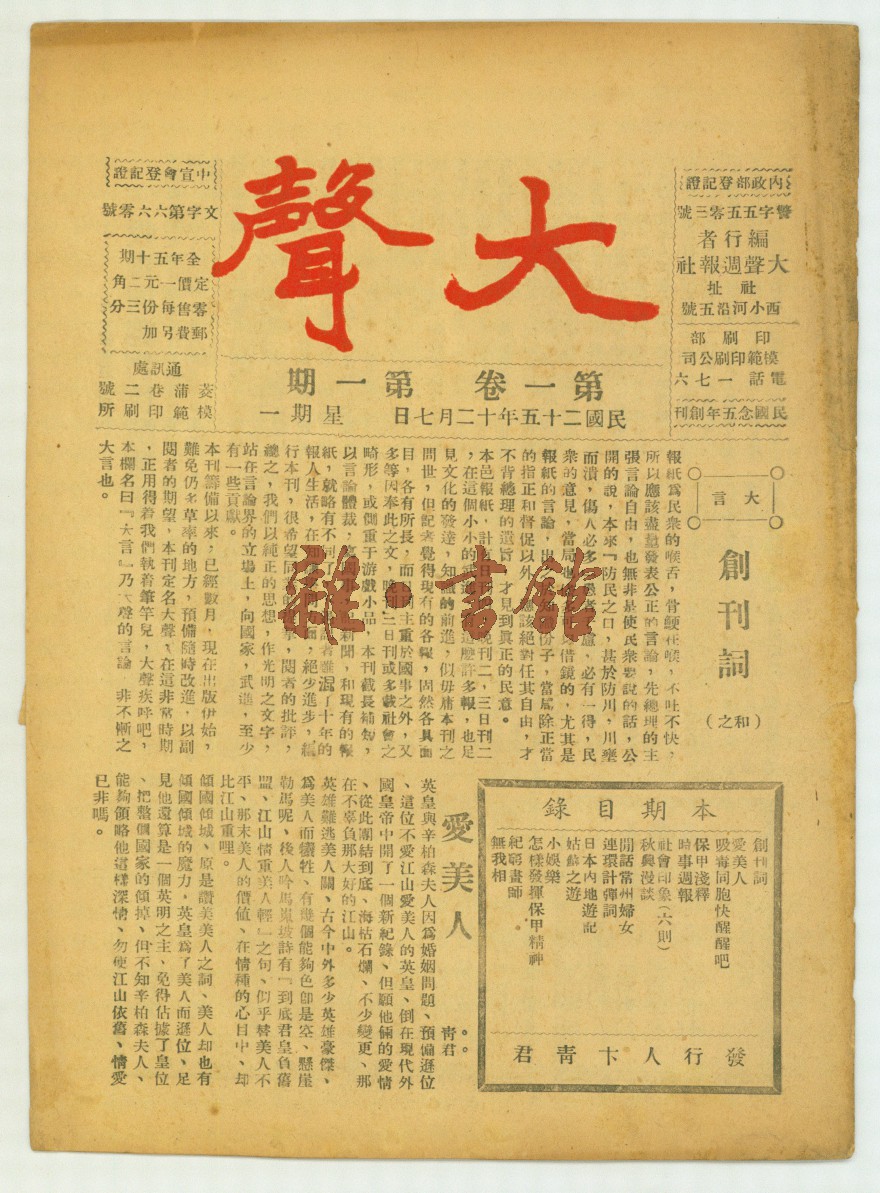 大聲
內政部登記證
警字五五零三號
編行者
大聲週報社
社址
西小河沿五號
印刷部
模範印刷公司
電話一七六
民國念五年創刊
中宣會登記證
文字第六六零號
全年五十期
定價一元二角
零售每份三分
郵費另加
通訊處
菱蒲巷二號
模範印刷所
第一卷 第一期
民國二十五年十二月七日 星期一
大言
創刊詞
(和之)
報紙爲民衆的喉舌，骨鯁在喉，不吐不快，
所以應該盡量發表公正的言論，先總理的主
張言論自由，也無非是使民衆要說的話，公
開的說，本來『防民之口，甚於防川，川壅
而潰，傷人必多，愚者千慮，必有一得，民
衆的意見，當局也借鏡的，尤其是
報紙的言論，出份子，當局除正當
的指正和督促以外，應該絕對任其自由，才
不背總理的遺旨，才見到眞正的民意。
本邑報紙，計日刊晚刊二，三日刊二
，在這個小小的武進這麼許多報，也足
見文化的發達，知識的前進，似毋庸本刊之
問世，但記者覺得現有的各報，固然各具面
目，各有所長，而日刊主重於國事之外，又
多等因奉此之文，晚刊三日刊或多載社會之
畸形，或側重于游戲小品，本刊截長補短，
以言論體裁，寫新聞，和現有的報
紙，就略有不同了，者雖混了十年的
報人生活，在知方面，絕少進步，編
行本刊，很希望同，閱者的批評，
總之，我們以純正的思想，作光明之文字，
站在言論界的立場上，向國家，武進，至少
有一些貢獻。
本刊籌備以來，已經數月，現在出版伊始，
難免仍多草率的地方，預備隨時改進，以副
閱者的期望，本刊定名大聲，在這非常時期
，正用得着我們執着筆竿兒，大聲疾呼吧，
本欄名曰『大言』乃大聲的言論 非不慚之
大言也。
本期目錄
創刊詞
愛美人
吸毒同胞快醒醒吧
保甲淺釋
時事週報
社會印象(六則)
秋興漫談
閒話常州婦女
連環計彈詞
日本內地遊記
姑蘇之遊
小娛樂
怎樣發揮保甲精神
紀窮畫師
無我相
發行人卞靑君
愛美人
靑君
英皇與辛柏森夫人因爲婚姻問題、預備遜位
、這位不愛江山愛美人的英皇、倒在現代外
國皇帝中開了一個新紀錄、但願他倆的愛情
、從此團結到底、海枯石爛、不少變更、那
在不辜負那大好的江山。
英雄難逃美人關、古今中外多少英雄豪傑、
爲美人而犧牲、有幾個能夠色卽是空、懸崖
勒馬呢、後人吟馬嵬坡詩有『到底君皇負舊
盟、江山情重美人輕』之句、似乎替美人不
平、那末美人的價値、在情種的心目中、却
比江山重哩。
傾國傾城、原是讚美美人之詞、美人却也有
傾國傾城的魔力、英皇爲了美人而遜位、足
見他還算是一個英明之主、免得佔據了皇位
、把整個國家的傾掉、但不知辛柏森夫人、
能夠領略他這樣深情、勿使江山依舊、情愛
已非嗎。
雜·書館